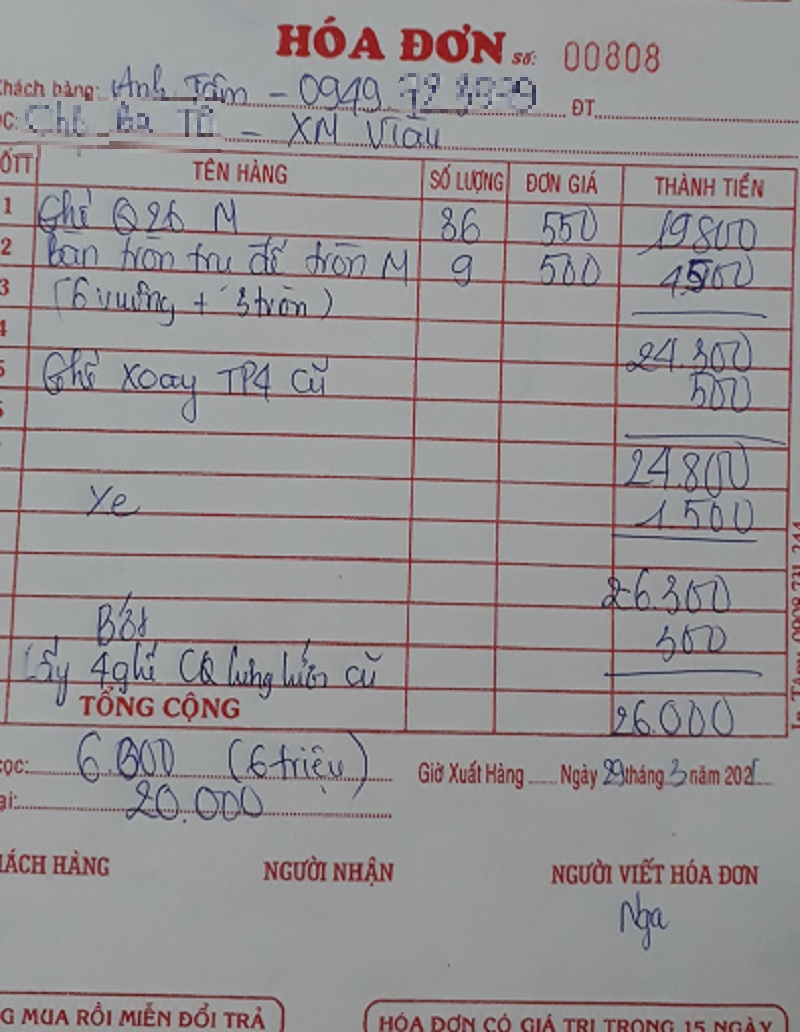 HÓA ĐƠN Số: 00808
Khách hàng: Anh Tâm - 0949 ĐT
- XM
TÊN HÀNG SỐ LƯỢNG ĐƠN GIÁ THÀNH TIỀN
1 Ghế Q26 M 36 550 19800
2 bàn tròn trụ đế tròn M 9 500 4500
3 (6 vuông + 3 tròn)
4 24.300
5 Ghế xoay TP4 cũ 500
24.800
Xe 1500
26.300
Bớt 300
Lấy 4 ghế CQ lưng lưới cũ
TỔNG CỘNG 26.000
cọc: 6.000 (6 triệu) Giờ Xuất Hàng Ngày 29 tháng 3 năm 202
ại: 20.000
HÁCH HÀNG NGƯỜI NHẬN NGƯỜI VIẾT HÓA ĐƠN
Nga
G MUA RỒI MIỄN ĐỔI TRẢ HÓA ĐƠN CÓ GIÁ TRỊ TRONG 15 NGÀY